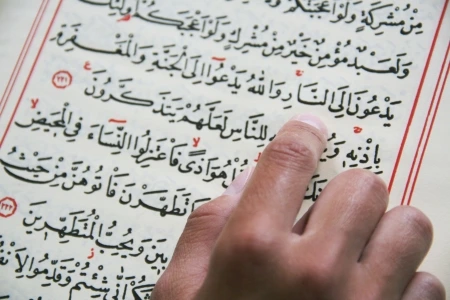 مِنْ مُشْرِكَةٍ وَلَوْ اَعْجَبَتْكُمْ
وَلَعَبْدٌ مُؤْمِنٌ خَيْرٌ مِنْ مُشْرِكٍ وَلَوْ اَعْجَبَكُمْ اُولٰٓئِكَ
يَدْعُونَ اِلَى النَّارِ وَاللّٰهُ يَدْعُٓوا اِلَى الْجَنَّةِ وَالْمَغْفِرَةِ
بِاِذْنِهٖ لِلنَّاسِ لَعَلَّهُمْ يَتَذَكَّرُونَ ﴿٢٢١﴾
هُوَ اَذًى فَاعْتَزِلُوا النِّسَٓاءَ فِي الْمَحِيضِ
تَطَهَّرْنَ فَأْتُوهُنَّ مِنْ حَيْثُ
وَيُحِبُّ الْمُتَطَهِّرِينَ ﴿٢٢٢﴾
اَنّٰى شِئْتُمْ وَقَدِّمُوا